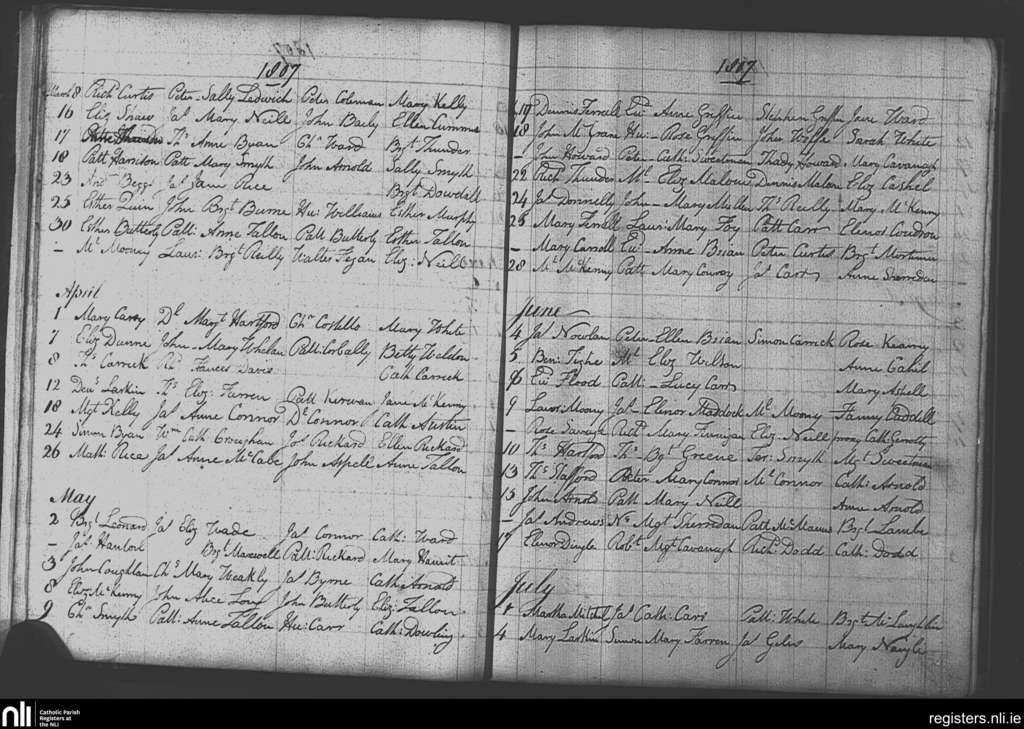 1807
March 8 Richd Curtis Peter - Sally Ledwich Peter Coleman Mary Kelly
16 Eliz Shaw Jas Mary Neill John Baily Ellen Cumms
17 Ths Anne Byan Chrs Ward Bgt Thunder
18 Patt Harrison Patt Mary Smyth John Arnold Sally Smyth
23 Andw Beggs Jas Jane Rice Brgt Dowdall
25 Esther Quin John Brgt Burne Hu: Williams Esther Murphy
30 Esther Butterly Patt: Anne Fallon Patt Butterly Esther Fallon
- Ml Mooney Laur: Brgt Reilly Walter Fagan Eliz: Neill
April
1 Mary Carey Dl Margt Hartford Chrs Costello Mary White
7 Eliz Dunne John - Mary Whelan Patt: Corbally Betty Weldon
8 Ths Carrick Rd Frances Davis Cath Carrick
12 Denis Larkin Ths Eliz: Farren Patt Kirwan Jane McKenny
18 Mgt Kelly Jas Anne Connor Dl Connor Cath Austin
24 Simon Byan Wm Cath Croughan Jos Rickard Ellen Rickard
26 Math: Rice Jas Anne McCabe John Aspell Anne Fallon
May
2 Brgt Leonard Jas Eliz Wade Jas Connor Cath: Ward
- Jas Hanlon Brgt Maxwell Patt: Rickard Mary
3 John Coughlan Chs Mary Weakly Jas Byrne Cath: Arnold
8 Eliz McKenny John Alice Long John Butterly Eliz: Fallon
9 Chrs Smyth Patt: Anne Fallon Hu: Carr Cath: Dowling
1807
19 Dennis Ferrall Ed Anne Griffin Stephen Griffin Jane Ward
18 John McGrane Hu: - Rose Griffin John Sarah White
- John Howard Peter - Cath: Sweetman Thady Howard Mary Cavanagh
22 Richd Thunder Ml - Eliz Malone Dennis Malone Eliz Cashel
24 Jas Donnelly John - Mary Mullen Ts Reilly Mary McKenny
25 Mary Ferrell Laur: Mary Foy Patt Carr Elenor Condron
- Mary Carroll Ed - Anne Brian Peter Curtis Brgt Mortimer
28 Ml McKenny Patt Mary Conroy Jas Carr Anne Sherredan
June
4 Jas Nowlan Peter - Ellen Brian Simon Carrick Rose Kearny
5 Ben: Tighe Mt Eliz Wilson Anne Cahil
6 Ed Flood Patt - Lucy Carr Mary Ashell
9 Laur: Moony Jas - Elenor Maddock Ml Moony - Fanny Caddell
- Rose Savage Richd Mary Finnigan Eliz - Neill
10 Ths Harford Ths Bgt Greene Ter: Smyth Mgt Sweetman
13 Ths Stafford Peter Mary Connor Ml Connor Cath: Arnold
15 John Arnold Patt Mary Neill Anne Arnold
- Jas Andrews Ns Mgt Sherredan Patt McManus Brgt Lambe
17 Elenor Dingle Robt Mgt Cavanagh Richd Dodd Cath: Dodd
July
Martha Mitchel Jas Cath: Carr Patt: White Brgt McLaughlin
4 Mary Larkin Simon Mary Farren Jas Giles Mary Nangle
nli
Catholic Parish
Registers at
the NLI
registers.nli.ie